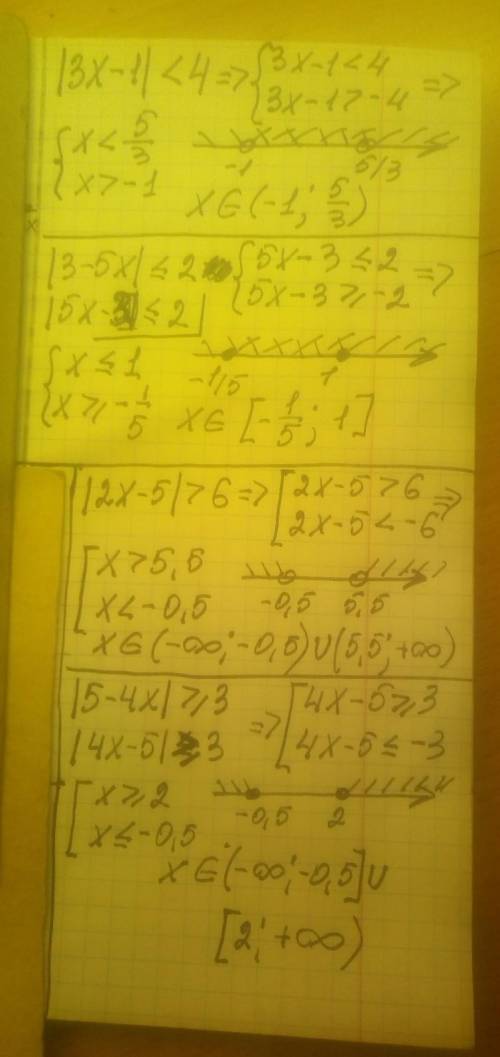 |3x-1| < 4 => { 3x-1 < 4
3x-1 > -4 =>
{ x < 5/3
x > -1
-1 5/3
x ∈ (-1; 5/3)
|3-5x| ≤ 2 { 5x-3 ≤ 2
5x-3 ≥ -2 =>
|5x-3| ≤ 2
{ x ≤ 1
x ≥ -1/5
-1/5 1
x ∈ [-1/5; 1]
|2x-5| > 6 => [ 2x-5 > 6
2x-5 < -6 =>
[ x > 5,5
x < -0,5
-0,5 5,5
x ∈ (-∞; -0,5) ∪ (5,5; +∞)
|5-4x| ≥ 3
|4x-5| ≥ 3 => [ 4x-5 ≥ 3
4x-5 ≤ -3
[ x ≥ 2
x ≤ -0,5
-0,5 2
x ∈ (-∞; -0,5] ∪
[2; +∞)